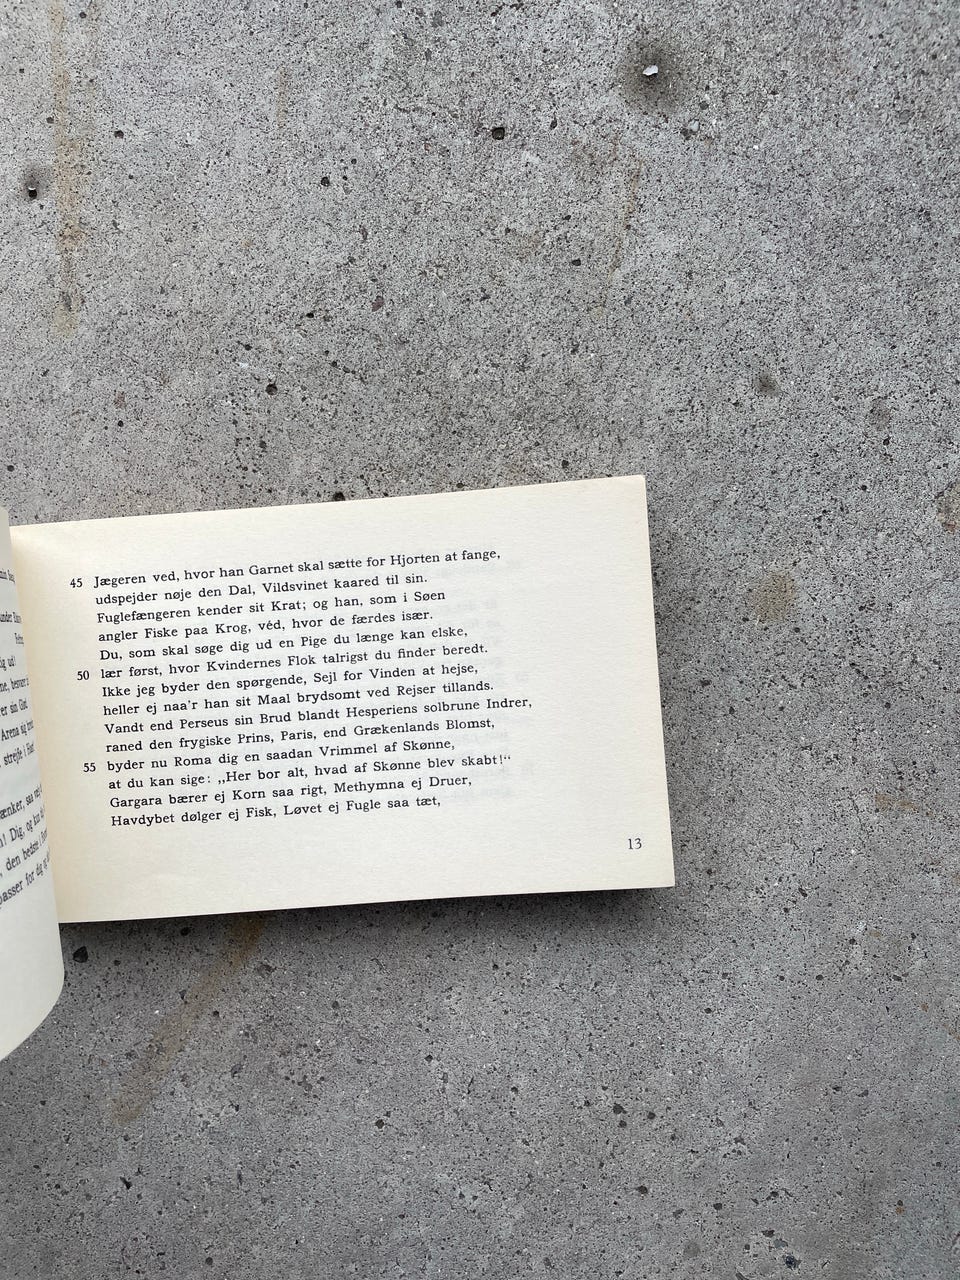 45 Jægeren ved, hvor han Garnet skal sætte for Hjorten at fange,
udspejder nøje den Dal, Vildsvinet kaared til sin.
Fuglefængeren kender sit Krat; og han, som i Søen
angler Fiske paa Krog, véd, hvor de færdes især.
Du, som skal søge dig ud en Pige du længe kan elske,
50 lær først, hvor Kvindernes Flok talrigst du finder beredt.
Ikke jeg byder den spørgende, Sejl for Vinden at hejse,
heller ej naa'r han sit Maal brydsomt ved Rejser tillands.
Vandt end Perseus sin Brud blandt Hesperiens solbrune Indrer,
raned den frygiske Prins, Paris, end Grækenlands Blomst,
55 byder nu Roma dig en saadan Vrimmel af Skønne,
at du kan sige: „Her bor alt, hvad af Skønne blev skabt!“
Gargara bærer ej Korn saa rigt, Methymna ej Druer,
Havdybet dølger ej Fisk, Løvet ej Fugle saa tæt,
13
ig ud!
er sin Gud.
Arena sig
strejfe i
ænker, saa
Dig, og
den bedste i
passer for dig